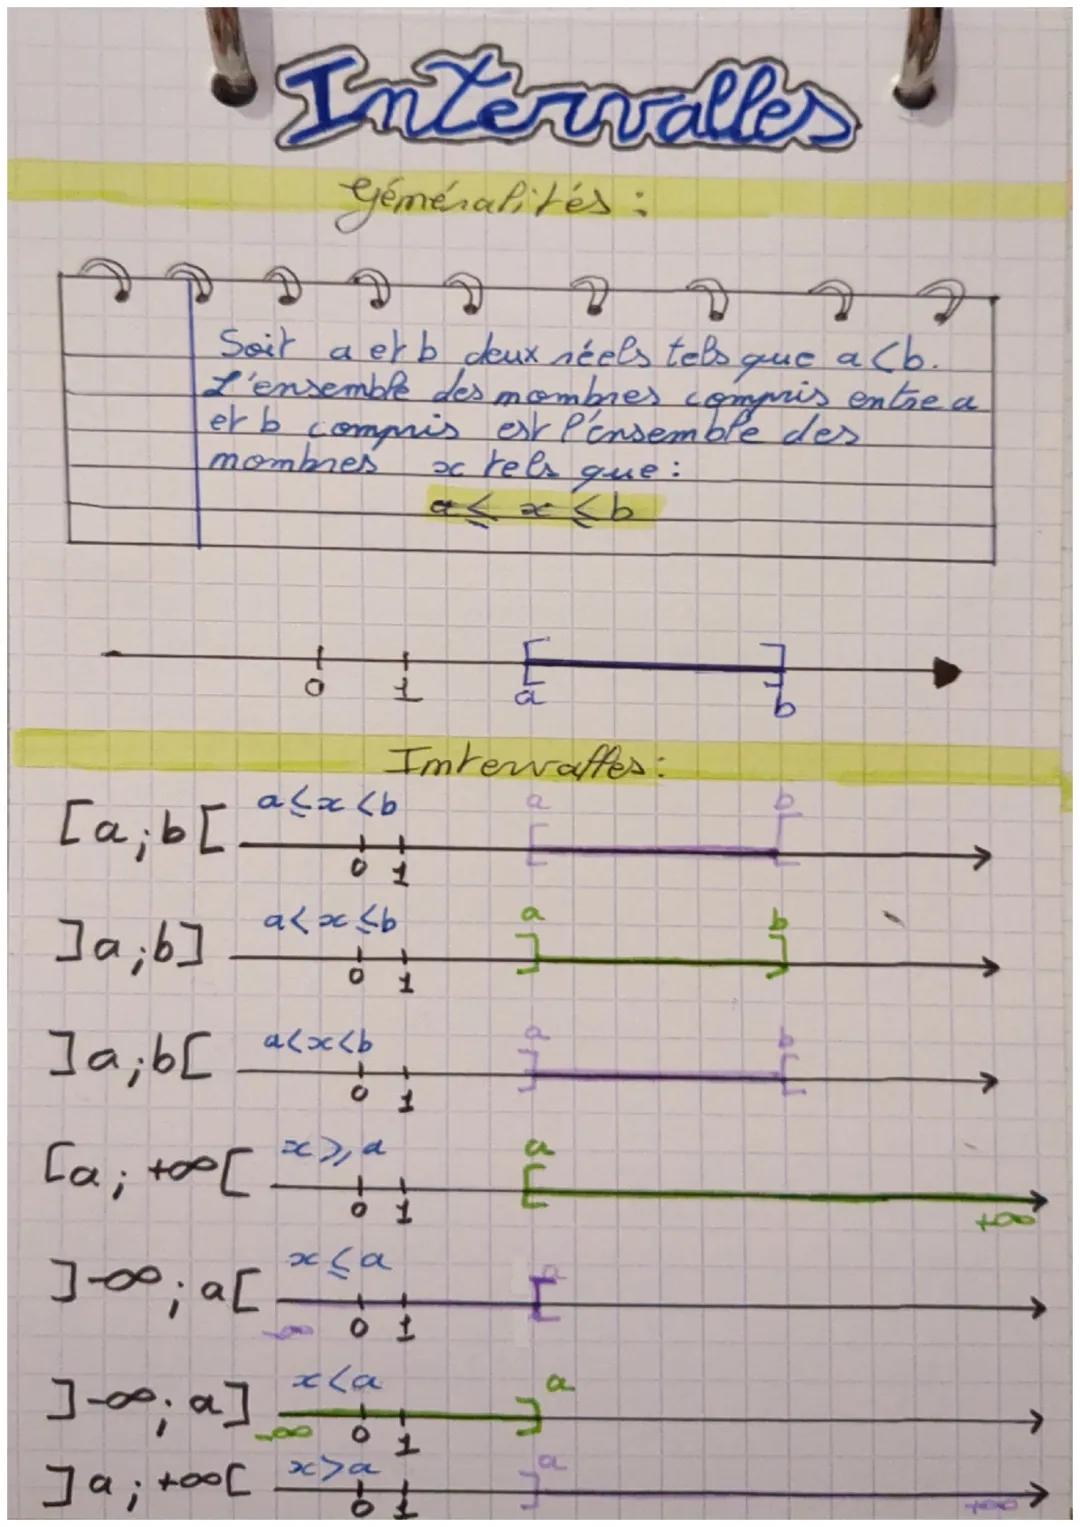 Intervalles
Généralités :
Soit a et b deux réels tels que a<b.
L'ensemble des nombres compris entre a
et b compris est l'ensemble des
nombres x tels que :
a ≤ x ≤ b
0 1 a b
Intervalles :
[a;b[ a≤x<b 0 1 a b
]a;b] a<x≤b 0 1 a b
]a;b[ a<x<b 0 1 a b
[a;+∞[ x⩾a 0 1 a +∞
]-∞;a[ x≤a -∞ 0 1 a
]-∞;a] x<a -∞ 0 1 a
]a;+∞[ x>a 0 1 a +∞